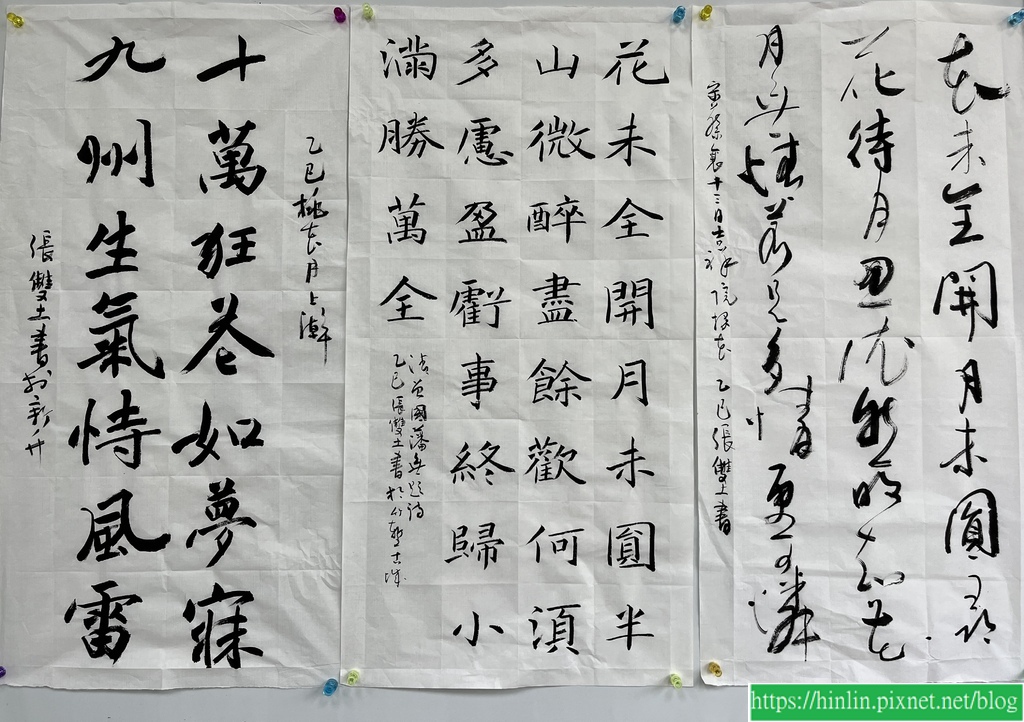 花未全開月未圓尋
花待月思依然明知花
月無情若多情更可憐
宋蔡襄十三日吉祥院探花 乙巳張雙土書
花未全開月未圓半
山微醉盡餘歡何須
多慮盈虧事終歸小
滿勝萬全
清曾國藩無題詩
乙巳張雙土書於竹塹古城
乙巳桃花月上澣
十萬狂花如夢寐
九州生氣恃風雷
張雙土書於新竹
https://hinlin.pixnet.net/blog